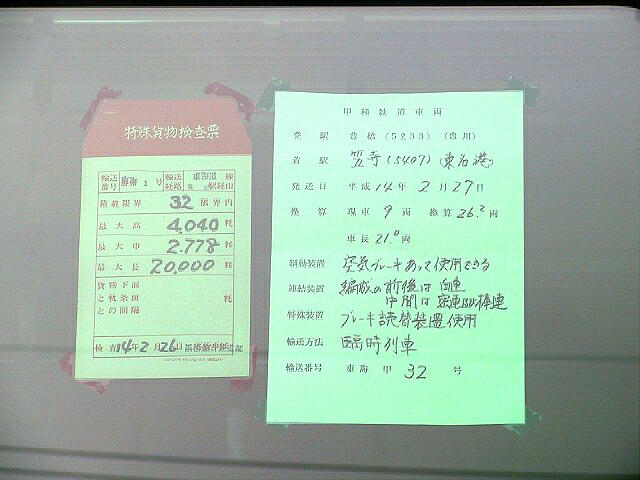 特殊貨物検査票
輸送番号 1号 輸送経路 東海道線 駅経由
積載限界 32 限界内
最大高 4,040 粍
最大巾 2,778 粍
最大長 20,000 粍
貨物下面
と軌条面 粍
との間隔
検査 14年2月26日
甲種鉄道車両
発駅 豊橋(5233)(豊川)
着駅 笠寺(5407)(東名港)
発送日 平成14年2月27日
換算 現車9両 換算26.2両
車長21.0両
制動装置 空気ブレーキあって使用できる
連結装置 編成の前後は自連
中間は密連及び棒連
特殊装置 ブレーキ読替装置使用
輸送方法 臨時列車
輸送番号 東海甲32号